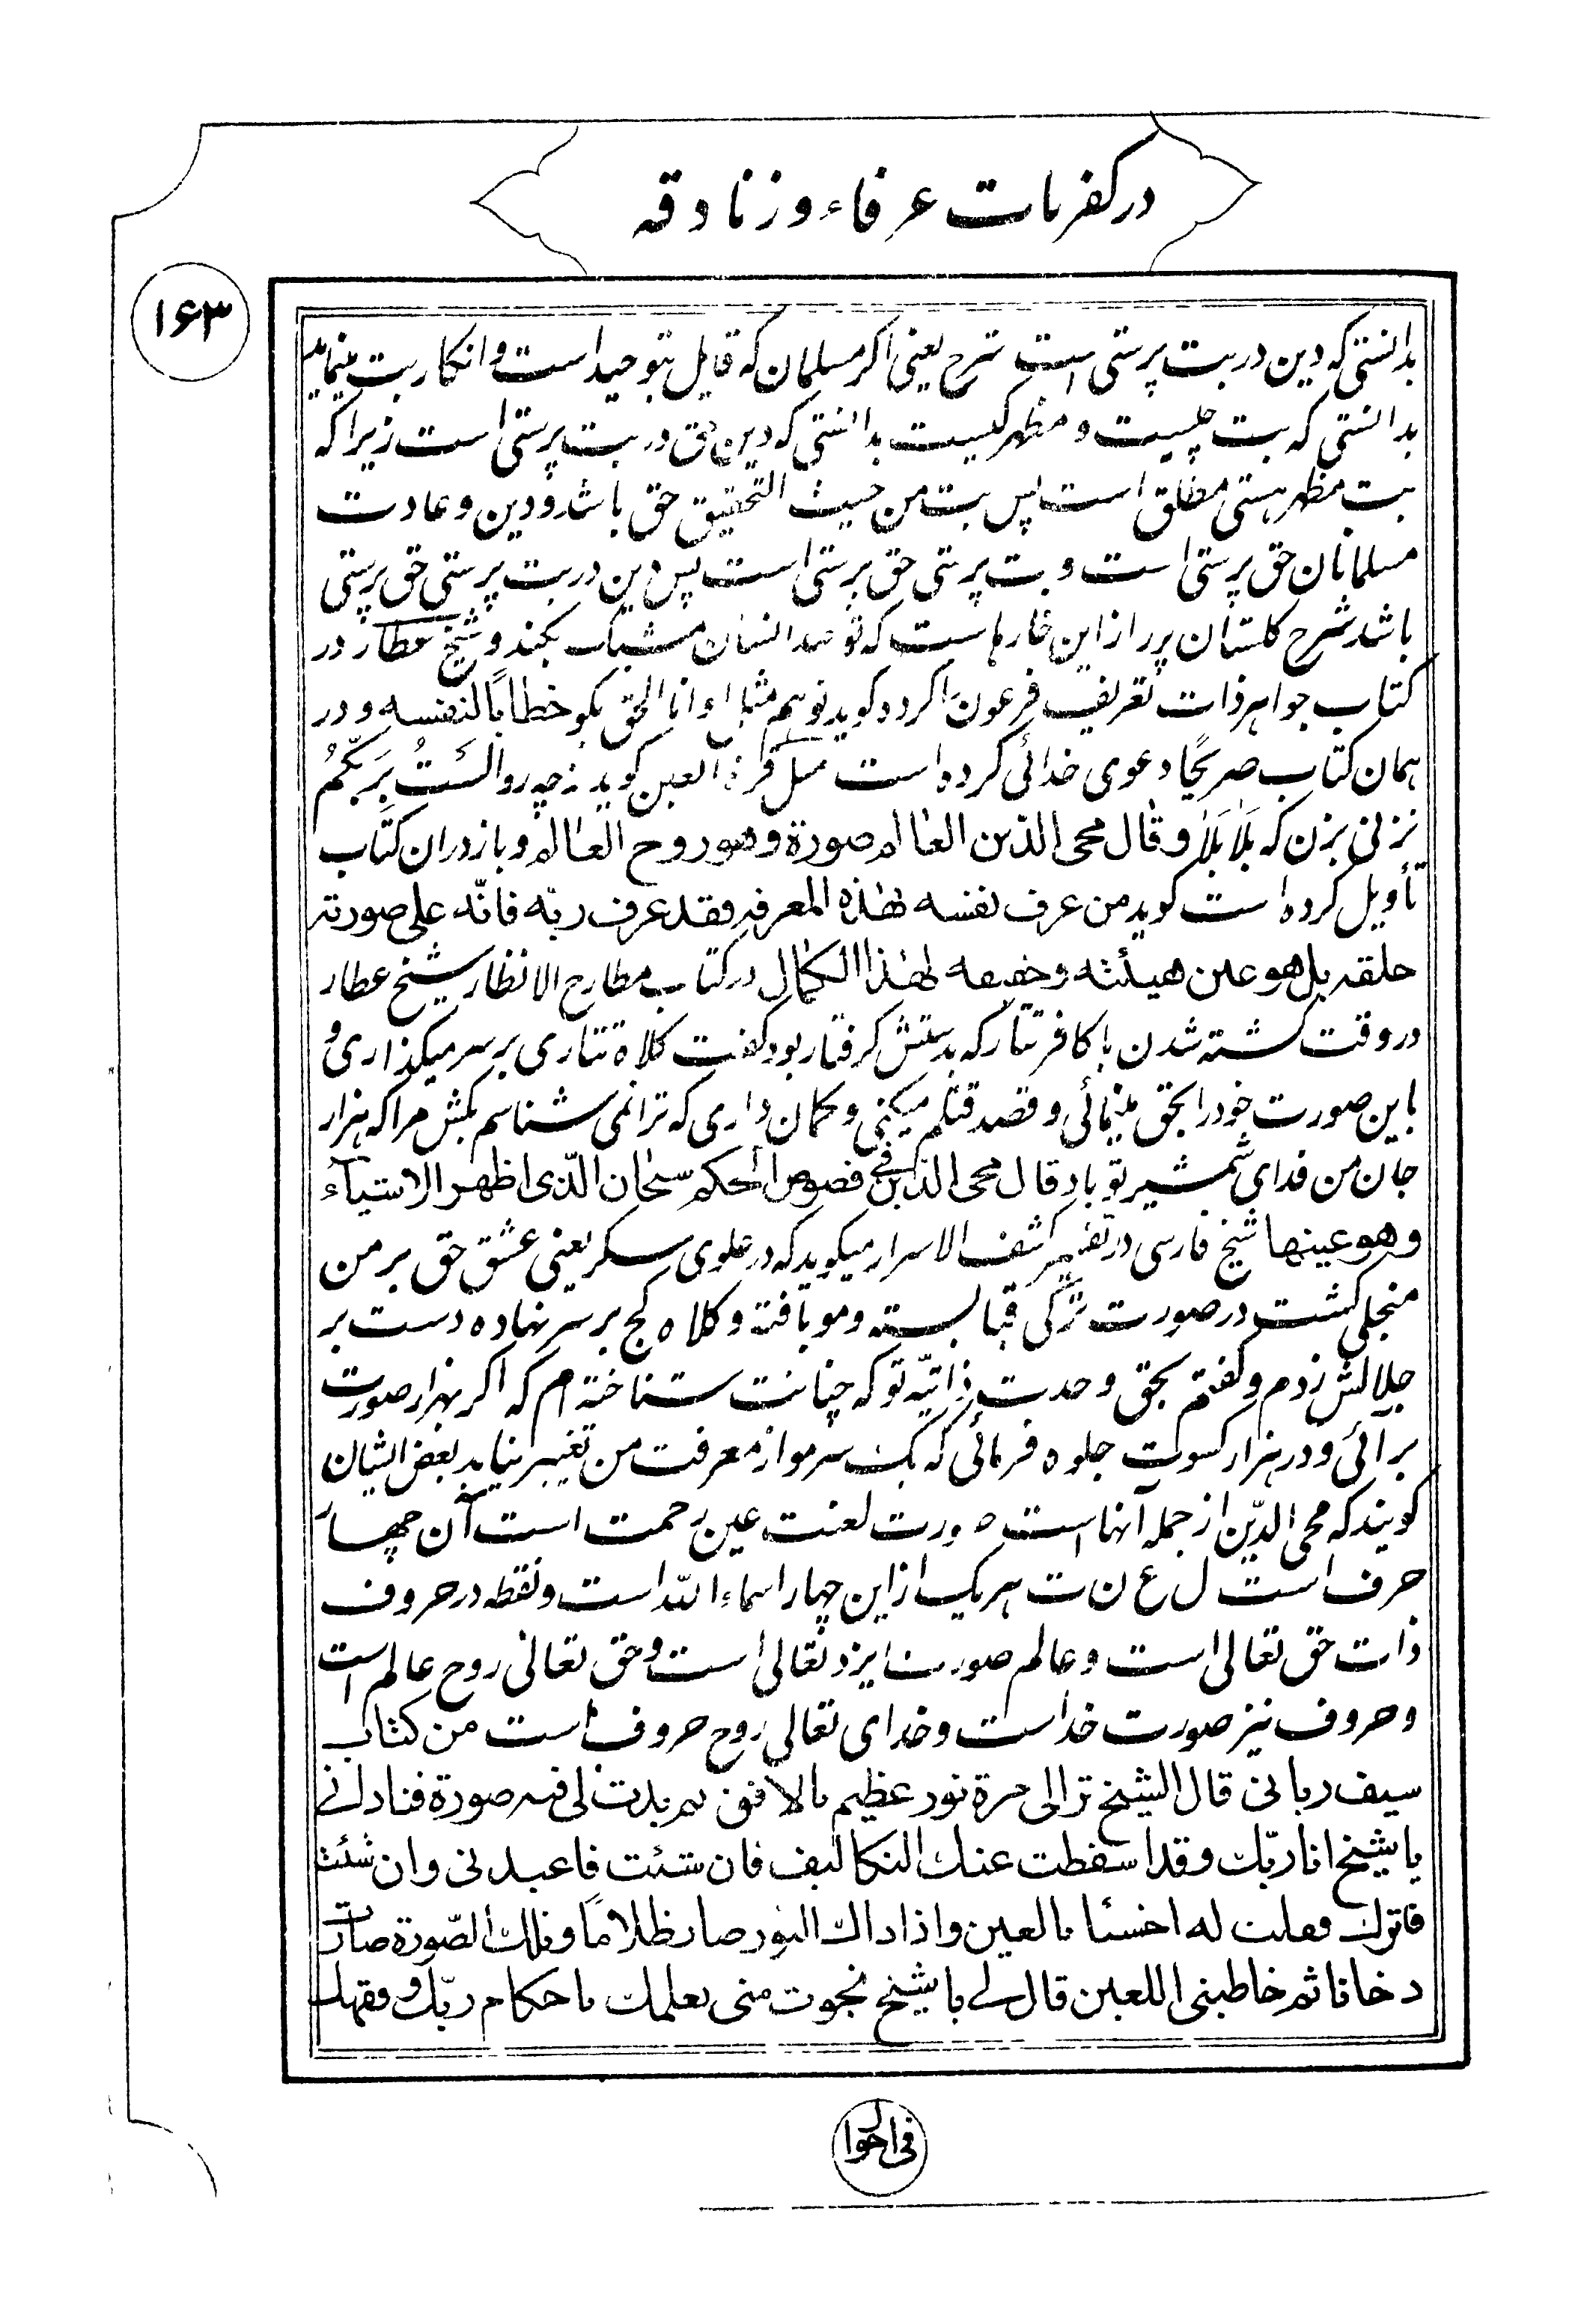 در کفریات عرفاء و زنادقه
۱۶۳
بدانستی که دین در بت پرستی است شرح یعنی اکر مسلمان که قایل بتوحید است و انکار بت مینماید
بدانستی که بت چیست و مظهر کیست بدانستی که دین حق در بت پرستی است زیرا که
بت مظهر هستی مطلق است پس بت من حیث التحقیق حق باشد و دین و عادت
مسلمانان حق پرستی است و بت پرستی حق پرستی است پس دین در بت پرستی حق پرستی
باشد شرح کلستان پر از این خارها است که توصد انسان مشبک بکند و شیخ عطار در
کتاب جواهر ذات تعریف فرعون را کرده کوید تو هم مثال او انا الحق بکو خطابا لنفسه و در
همان کتاب صریحا دعوی خدائی کرده است مثل قرة العین کوید زچه رو الست بربکم
نزنی بزن که بلا بلا و قال محی الدین العالم صورة و هو روح العالم و باز در ان کتاب
تأویل کرده است کوید من عرف نفسه بهذه المعرفه فقد عرف ربه فانّه علی صورته
خلقه بل هو عین هیئته و حقیقه بهذا الکمال در کتاب مطارح الانظار شیخ عطار
در وقت کشته شدن با کافر تتار که بدستش کرفتار بود کفت کلاه تتاری بر سر میکذاری و
باین صورت خود را بحق مینمائی و قصد قتلم میکنی و کمان داری که ترا نمی شناسم بکش مرا که هزار
جان من فدای شمشیر تو باد قال محی الدین فی فصوص الحکم سبحان الّذی اظهر الاشیاء
و هو عینها شیخ فارسی در تفسیر کاشف الاسرار میکوید که در علوی سکر یعنی عشق حق بر من
منجلی کشت در صورت ترکی قبا بسته و مو بافته و کلاه کج بر سر نهاده دست بر
جلالش زدم و کفتم بحق وحدت ذاتیّه تو که چنانت شناخته ام که اکر بهزار صورت
بر آئی و در هزار کسوت جلوه فرمائی که یک سر مو از معرفت من تغییر نیابد بعض ایشان
کویند که محی الدّین از جمله آنها است صورت لعنت عین رحمت است آن چهار
حرف است ل ع ن ت هر یک از این چهار اسماء الله است و نقطه در حروف
ذات حق تعالی است و عالم صورت ایزد تعالی است و حق تعالی روح عالم است
و حروف نیز صورت خداست و خدای تعالی روح حروف است من کتاب
سیف ربانی قال الشیخ ترا الی مرة نور عظیم بالافق ثم بدت لی فیه صورة فنادانی
یا شیخ انا ربّک و قد اسقطت عنک التکالیف فان شئت فاعبدنی و ان شئت
فاترک فقلت له اخسئا یا لعین و اذا ذاک النور صار ظلاما و تلک الصّورة صارت
دخانا ثم خاطبنی اللعین قال لی یا شیخ نجوت منی بعلمک باحکام ربّک و فقهک
فی احوال